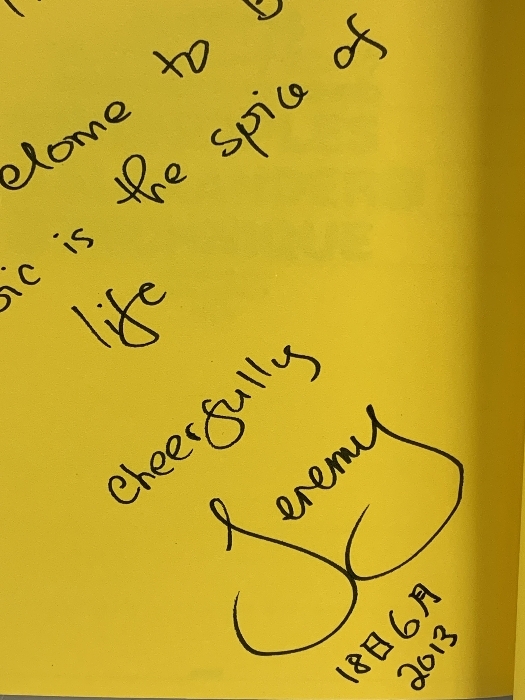 elcome to B
sic is the spice of
life
cheerfully
Jeremy
18日6月
2013